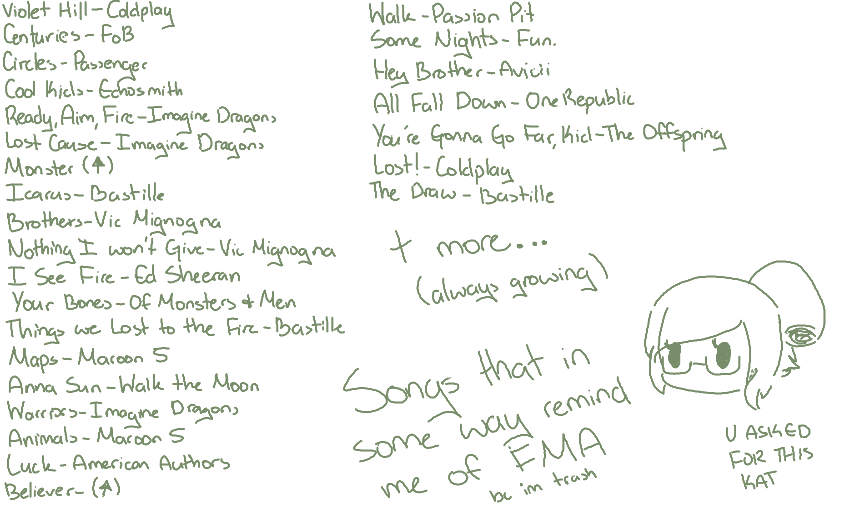 Violet Hill-Coldplay
Centuries-FoB
Circles-Passenger
Cool Kids-Echosmith
Ready, Aim, Fire-Imagine Dragons
Lost Cause-Imagine Dragons
Monster (↑)
Icarus-Bastille
Brothers-Vic Mignogna
Nothing I won't Give-Vic Mignogna
I See Fire-Ed Sheeran
Your Bones-Of Monsters & Men
Things we Lost to the Fire-Bastille
Maps-Maroon 5
Anna Sun-Walk the Moon
Warriors-Imagine Dragons
Animals-Maroon 5
Luck-American Authors
Believer-(↑)
Walk-Passion Pit
Some Nights-Fun.
Hey Brother-Avicii
All Fall Down-OneRepublic
You're Gonna Go Far, Kid-The Offspring
Lost!-Coldplay
The Draw-Bastille
+ more...
(always growing)
Songs that in
some way remind
me of FMA
bc im trash
U ASKED
FOR THIS
KAT